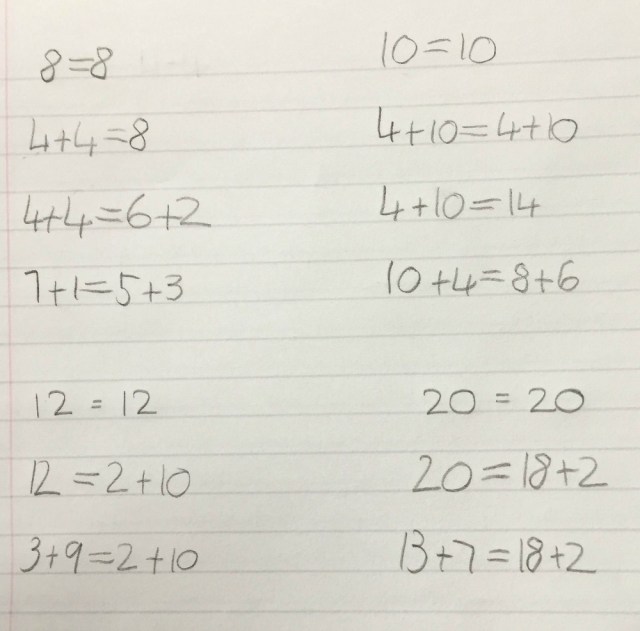 8=8
4+4=8
4+4=6+2
7+1=5+3
10=10
4+10=4+10
4+10=14
10+4=8+6
12=12
12=2+10
3+9=2+10
20=20
20=18+2
13+7=18+2